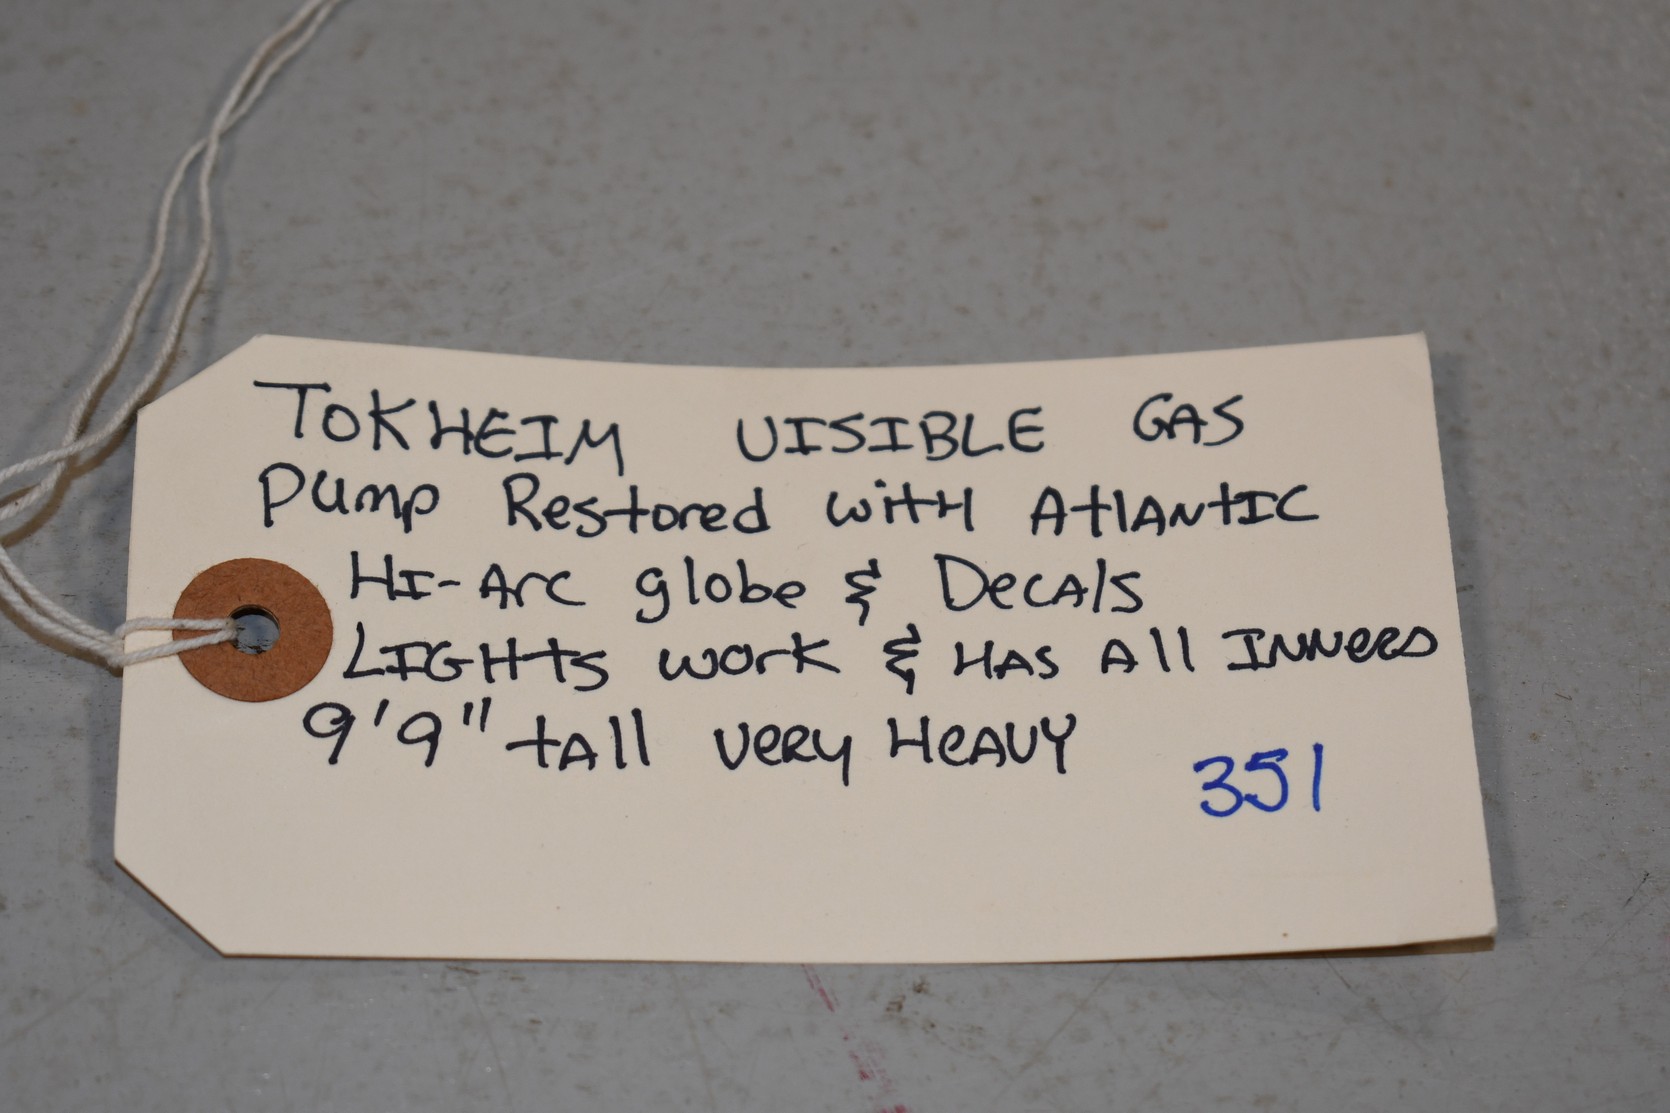 TOKHEIM VISIBLE GAS
Pump Restored with AtlAntIC
HI-Arc globe & DecAls
LIGHts work & HAS All INNeRS
9'9" tAll veRy HeAVY
351